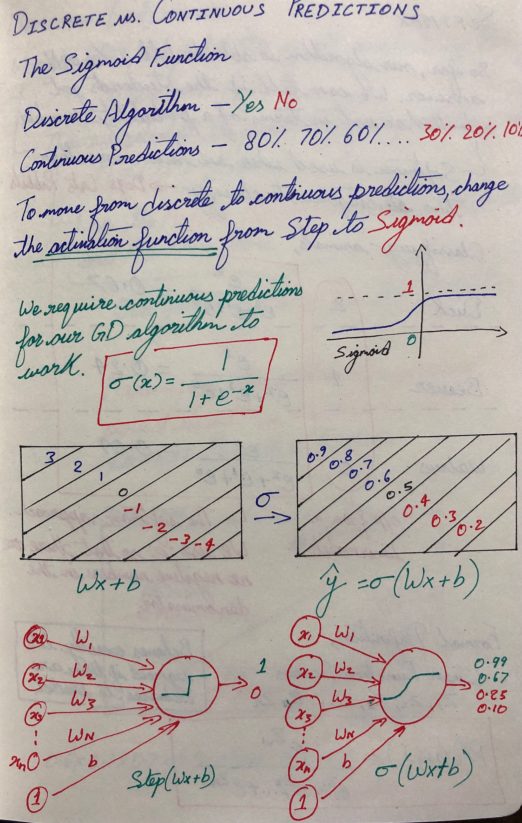 DISCRETE vs. CONTINUOUS PREDICTIONS
The Sigmoid Function
Discrete Algorithm – Yes No
Continuous Predictions – 80% 70% 60% .... 30% 20% 10%
To move from discrete to continuous predictions, change
the activation function from Step to Sigmoid.
We require continuous predictions
for our GD algorithm to
work.
σ(x) = 1 / (1 + e^-x)
1
0
Sigmoid
3 2 1 0 -1 -2 -3 -4
σ
⇒
0.9 0.8 0.7 0.6 0.5 0.4 0.3 0.2
Wx+b
ŷ = σ(Wx+b)
x1 W1
x2 W2
x3 W3
⋮
xn WN
1 b
1
0
Step(Wx+b)
x1 W1
x2 W2
x3 W3
⋮
xn WN
1 b
0.99
0.67
0.25
0.10
σ(Wx+b)